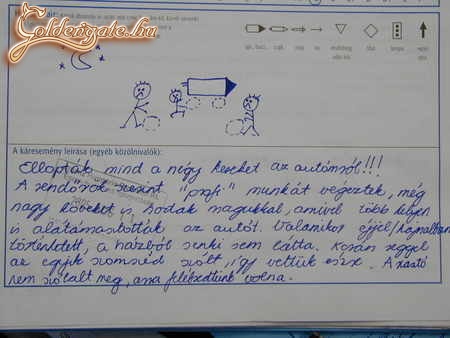 Goldengate.hu
A káresemény leírása (egyéb közölnivalók):
Ellopták mind a négy kereket az autómról!!!
A rendőrök szerint "profi" munkát végeztek, még
nagy köveket is hoztak magukkal, amivel több helyen
is alátámasztották az autót. Valamikor éjjel/hajnalban
történhetett, a házból senki sem látta. Korán reggel
az egyik szomszéd szólt, így vettük észre. A riasztó
nem szólalt meg, arra felébredtünk volna.